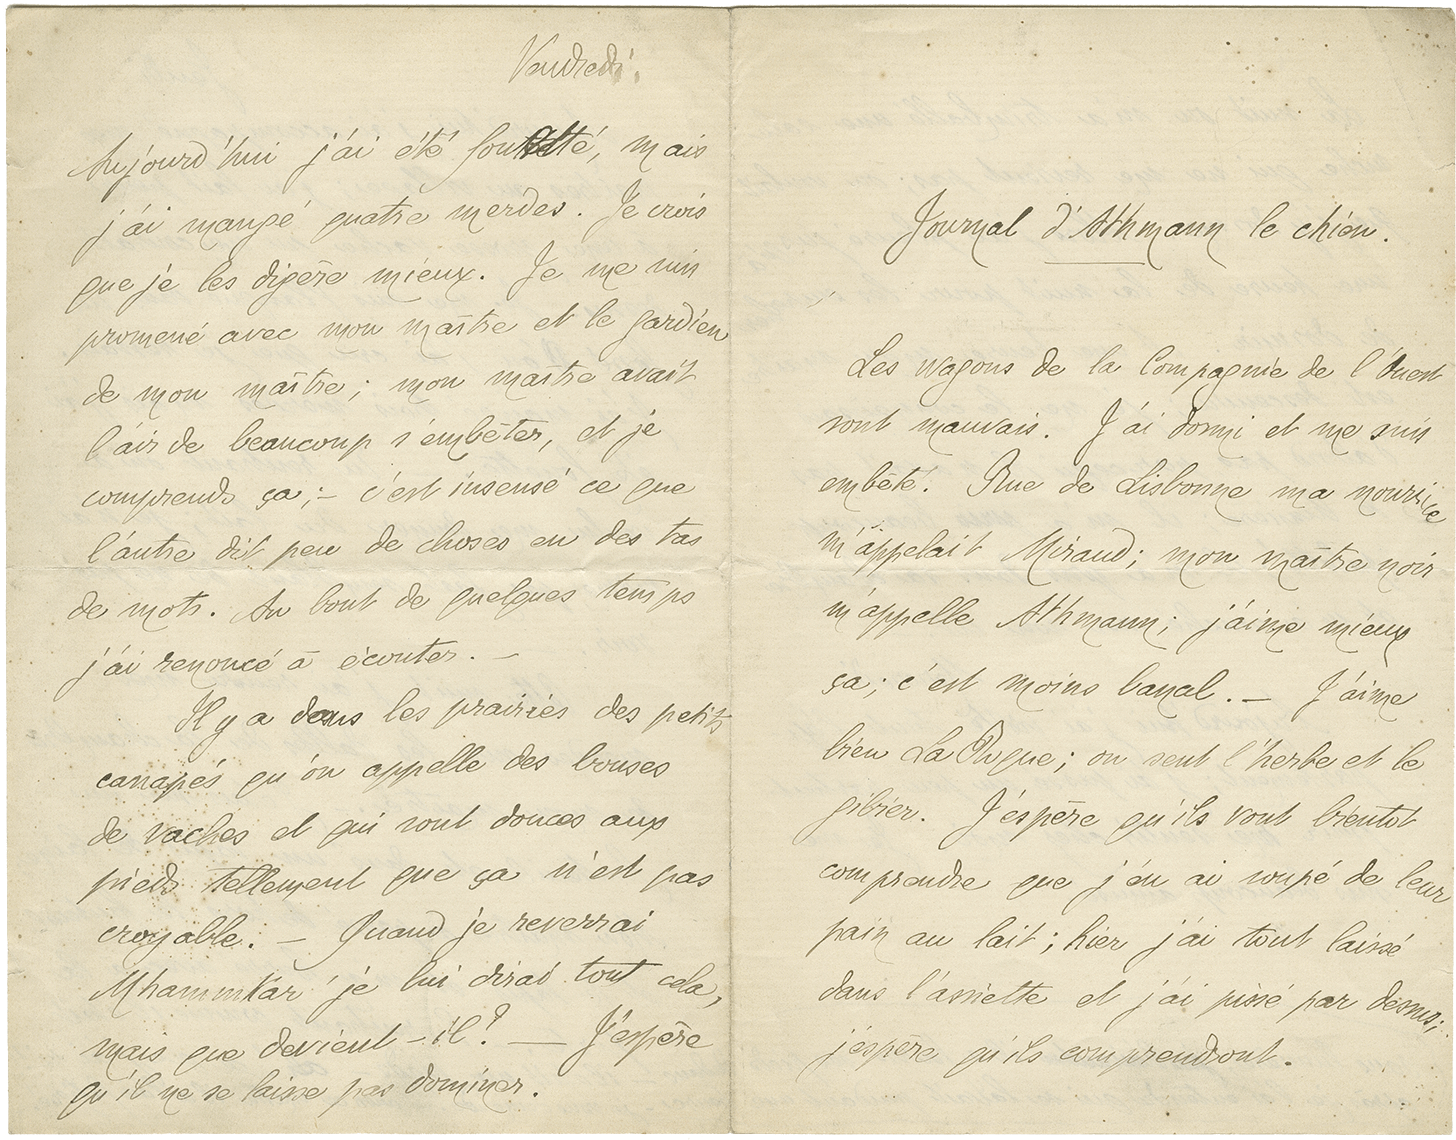 Vendredi.
Aujourd'hui j'ai été fouetté, mais
j'ai mangé quatre merdes. Je crois
que je les digère mieux. Je me suis
promené avec mon maître et le gardien
de mon maître ; mon maître avait
l'air de beaucoup s'embêter, et je
comprends ça ; – c'est insensé ce que
l'autre dit peu de choses en des tas
de mots. Au bout de quelques temps
j'ai renoncé à écouter. –
Il y a dans les prairies des petits
canapés qu'on appelle des bouses
de vaches et qui sont douces aux
pieds tellement que ça n'est pas
croyable. – Quand je reverrai
Mhammkar je lui dirai tout cela,
mais que devient-il ? – J'espère
qu'il ne se laisse pas dominer.
Journal d'Athmann le chien.
Les wagons de la Compagnie de l'Ouest
sont mauvais. J'ai dormi et me suis
embêté. Rue de Lisbonne ma nourrice
m'appelait Miraud ; mon maître noir
m'appelle Athmann ; j'aime mieux
ça ; c'est moins banal. – J'aime
bien La Roque ; on sent l'herbe et le
gibier. J'espère qu'ils vont bientôt
comprendre que j'en ai soupé de leur
pain au lait ; hier j'ai tout laissé
dans l'assiette et j'ai pissé par dessus ;
j'espère qu'ils comprendront.